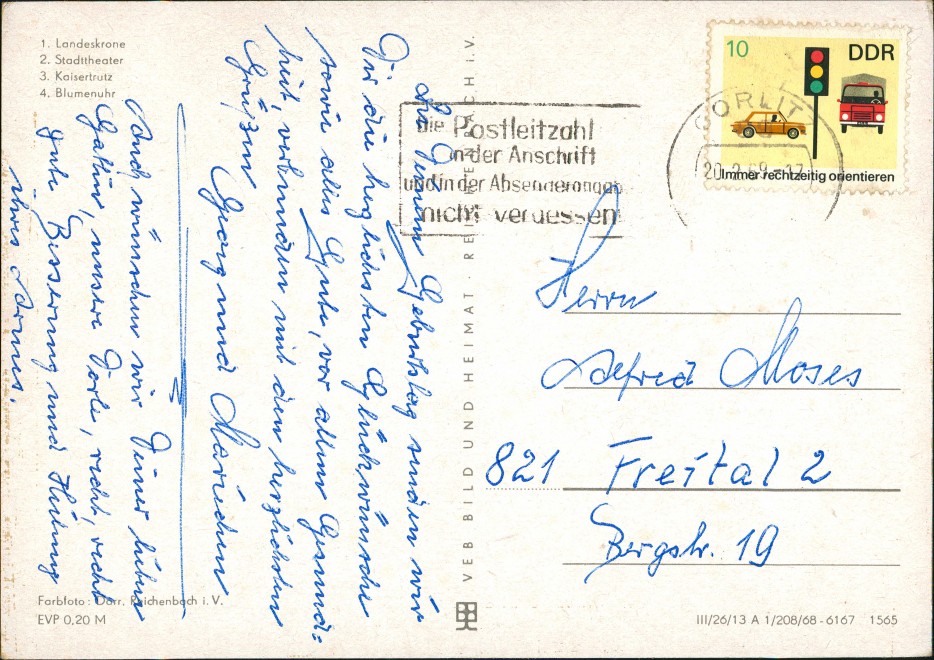 1. Landeskrone
2. Stadttheater
3. Kaisertrutz
4. Blumenuhr
Zu Deinem Geburtstag senden wir
Dir die herzlichsten Glückwünsche
sowie alles Gute, vor allem Gesund=
heit, verbunden mit den herzlichsten
Grüßen Georg und Mariechen
Auch wünschen wir Deiner lieben
Gattin, unsere Dorle, recht, recht
gute Besserung und Heilung
ihres Armes.
Farbfoto: Darr, Reichenbach i. V.
EVP 0,20 M
VEB BILD UND HEIMAT · REICHENBACH i.V.
Die Postleitzahl
in der Anschrift
und in der Absenderangabe
nicht vergessen
GÖRLITZ
10
DDR
Immer rechtzeitig orientieren
Herrn
Alfred Moses
821 Freital 2
Bergstr. 19
III/26/13 A 1/208/68 - 6167 1565